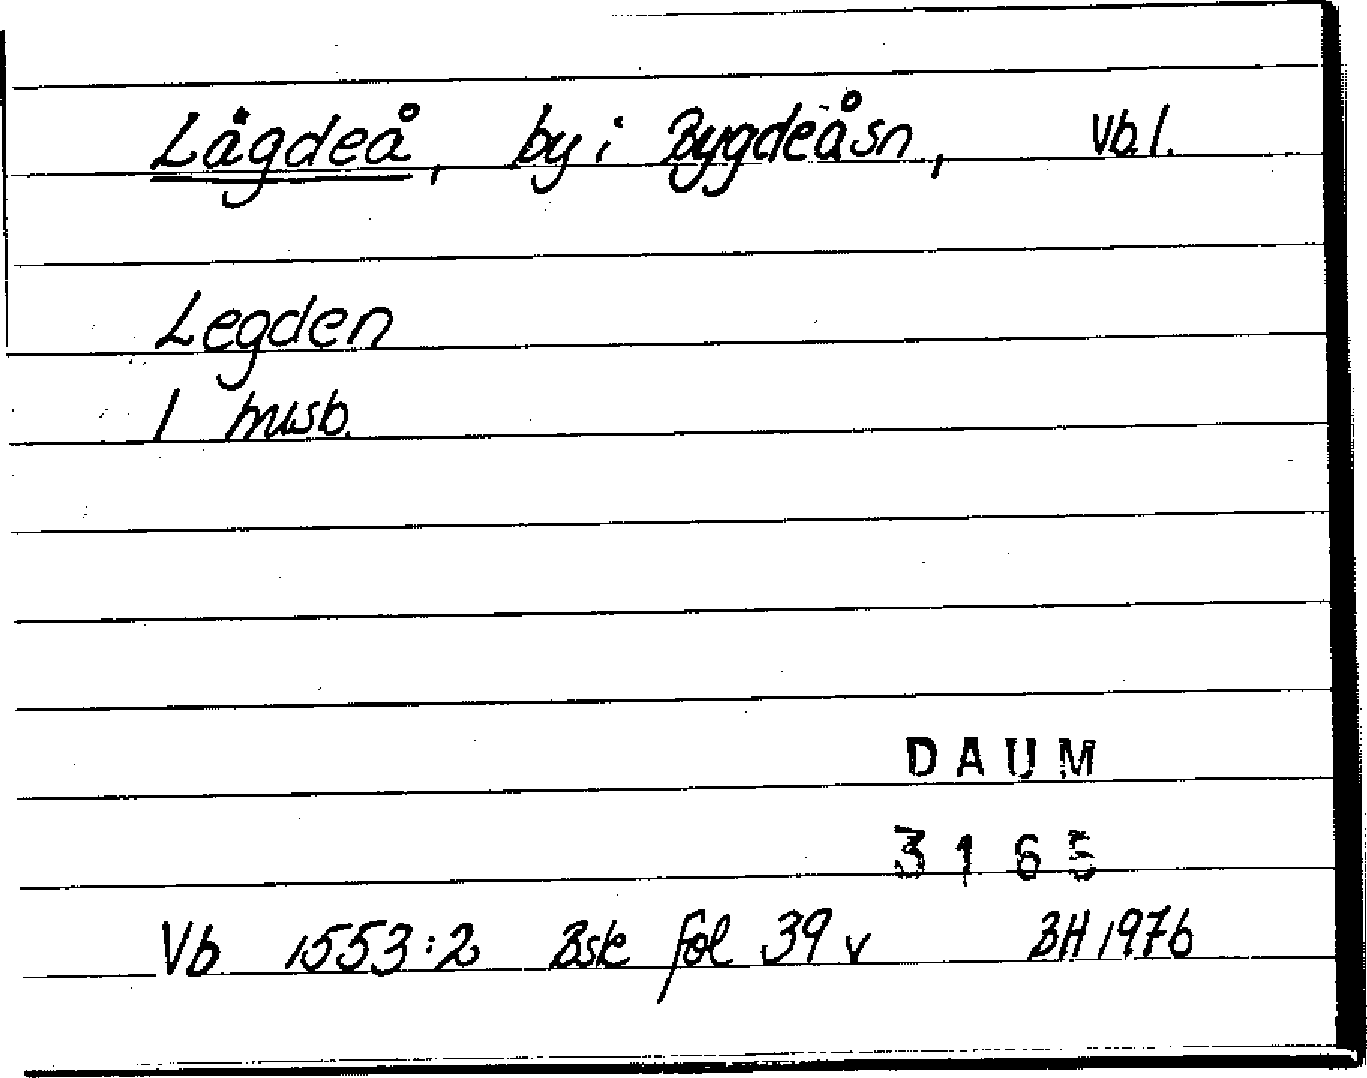 Lägdeå, by i Bygdeåsn, Vb.l.
Legden
1 husb.
DAUM
3165
Vb 1553:2 Bsk fol 39 v BH 1976